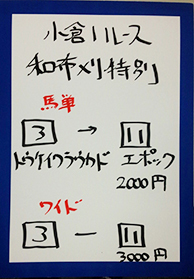 小倉11レース
和布刈特別
馬単
3 → 11
トウケイワラウカド エポック
2000円
ワイド
3 － 11
3000円